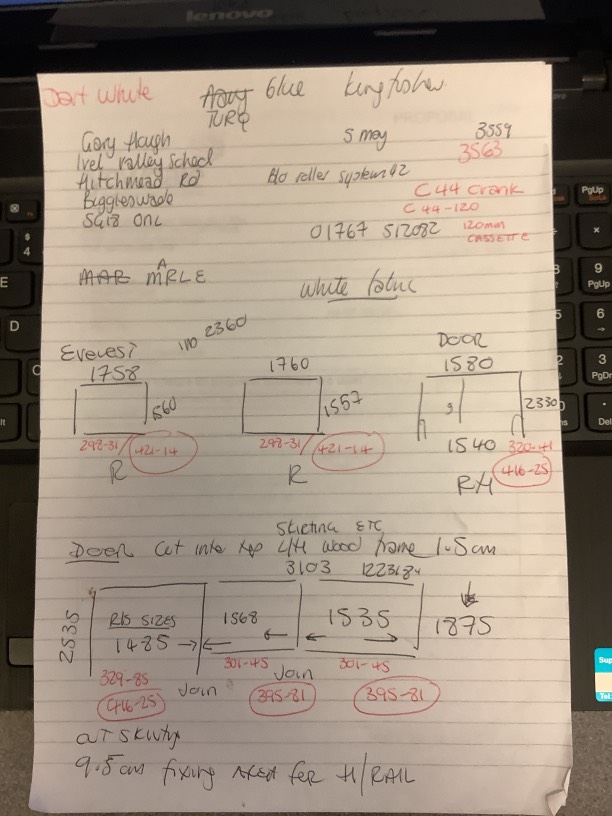 lenovo
Dart White
Navy blue kingfisher
TURQ
Gary Hough 5 may 3559
Ivel Valley School 3563
Hitchmead Rd Blo roller system 42
Biggleswade C44 Crank
C44-120
SG18 0NL
01767 512082 120mm
CASSETTE
MAR MARLE
White fabric
Everest 1110 2360 DOOR
1758 1760 1580
560 1557 2330
298-31/421-14 298-31/421-14 1540 320-41
416-25
R R RH
Skirting ETC
DOOR Cut into top L/H wood frame 1.5cm
3103
2535 R/S SIZES 1568 1535 1875
1485
329-85 301-45 301-45
416-25 Join Join 395-81 395-81
CUT Skirting
9.5cm fixing AREA for H/RAIL
PgUp
9
PgUp
6
PgDn
3
Del
4
E
D